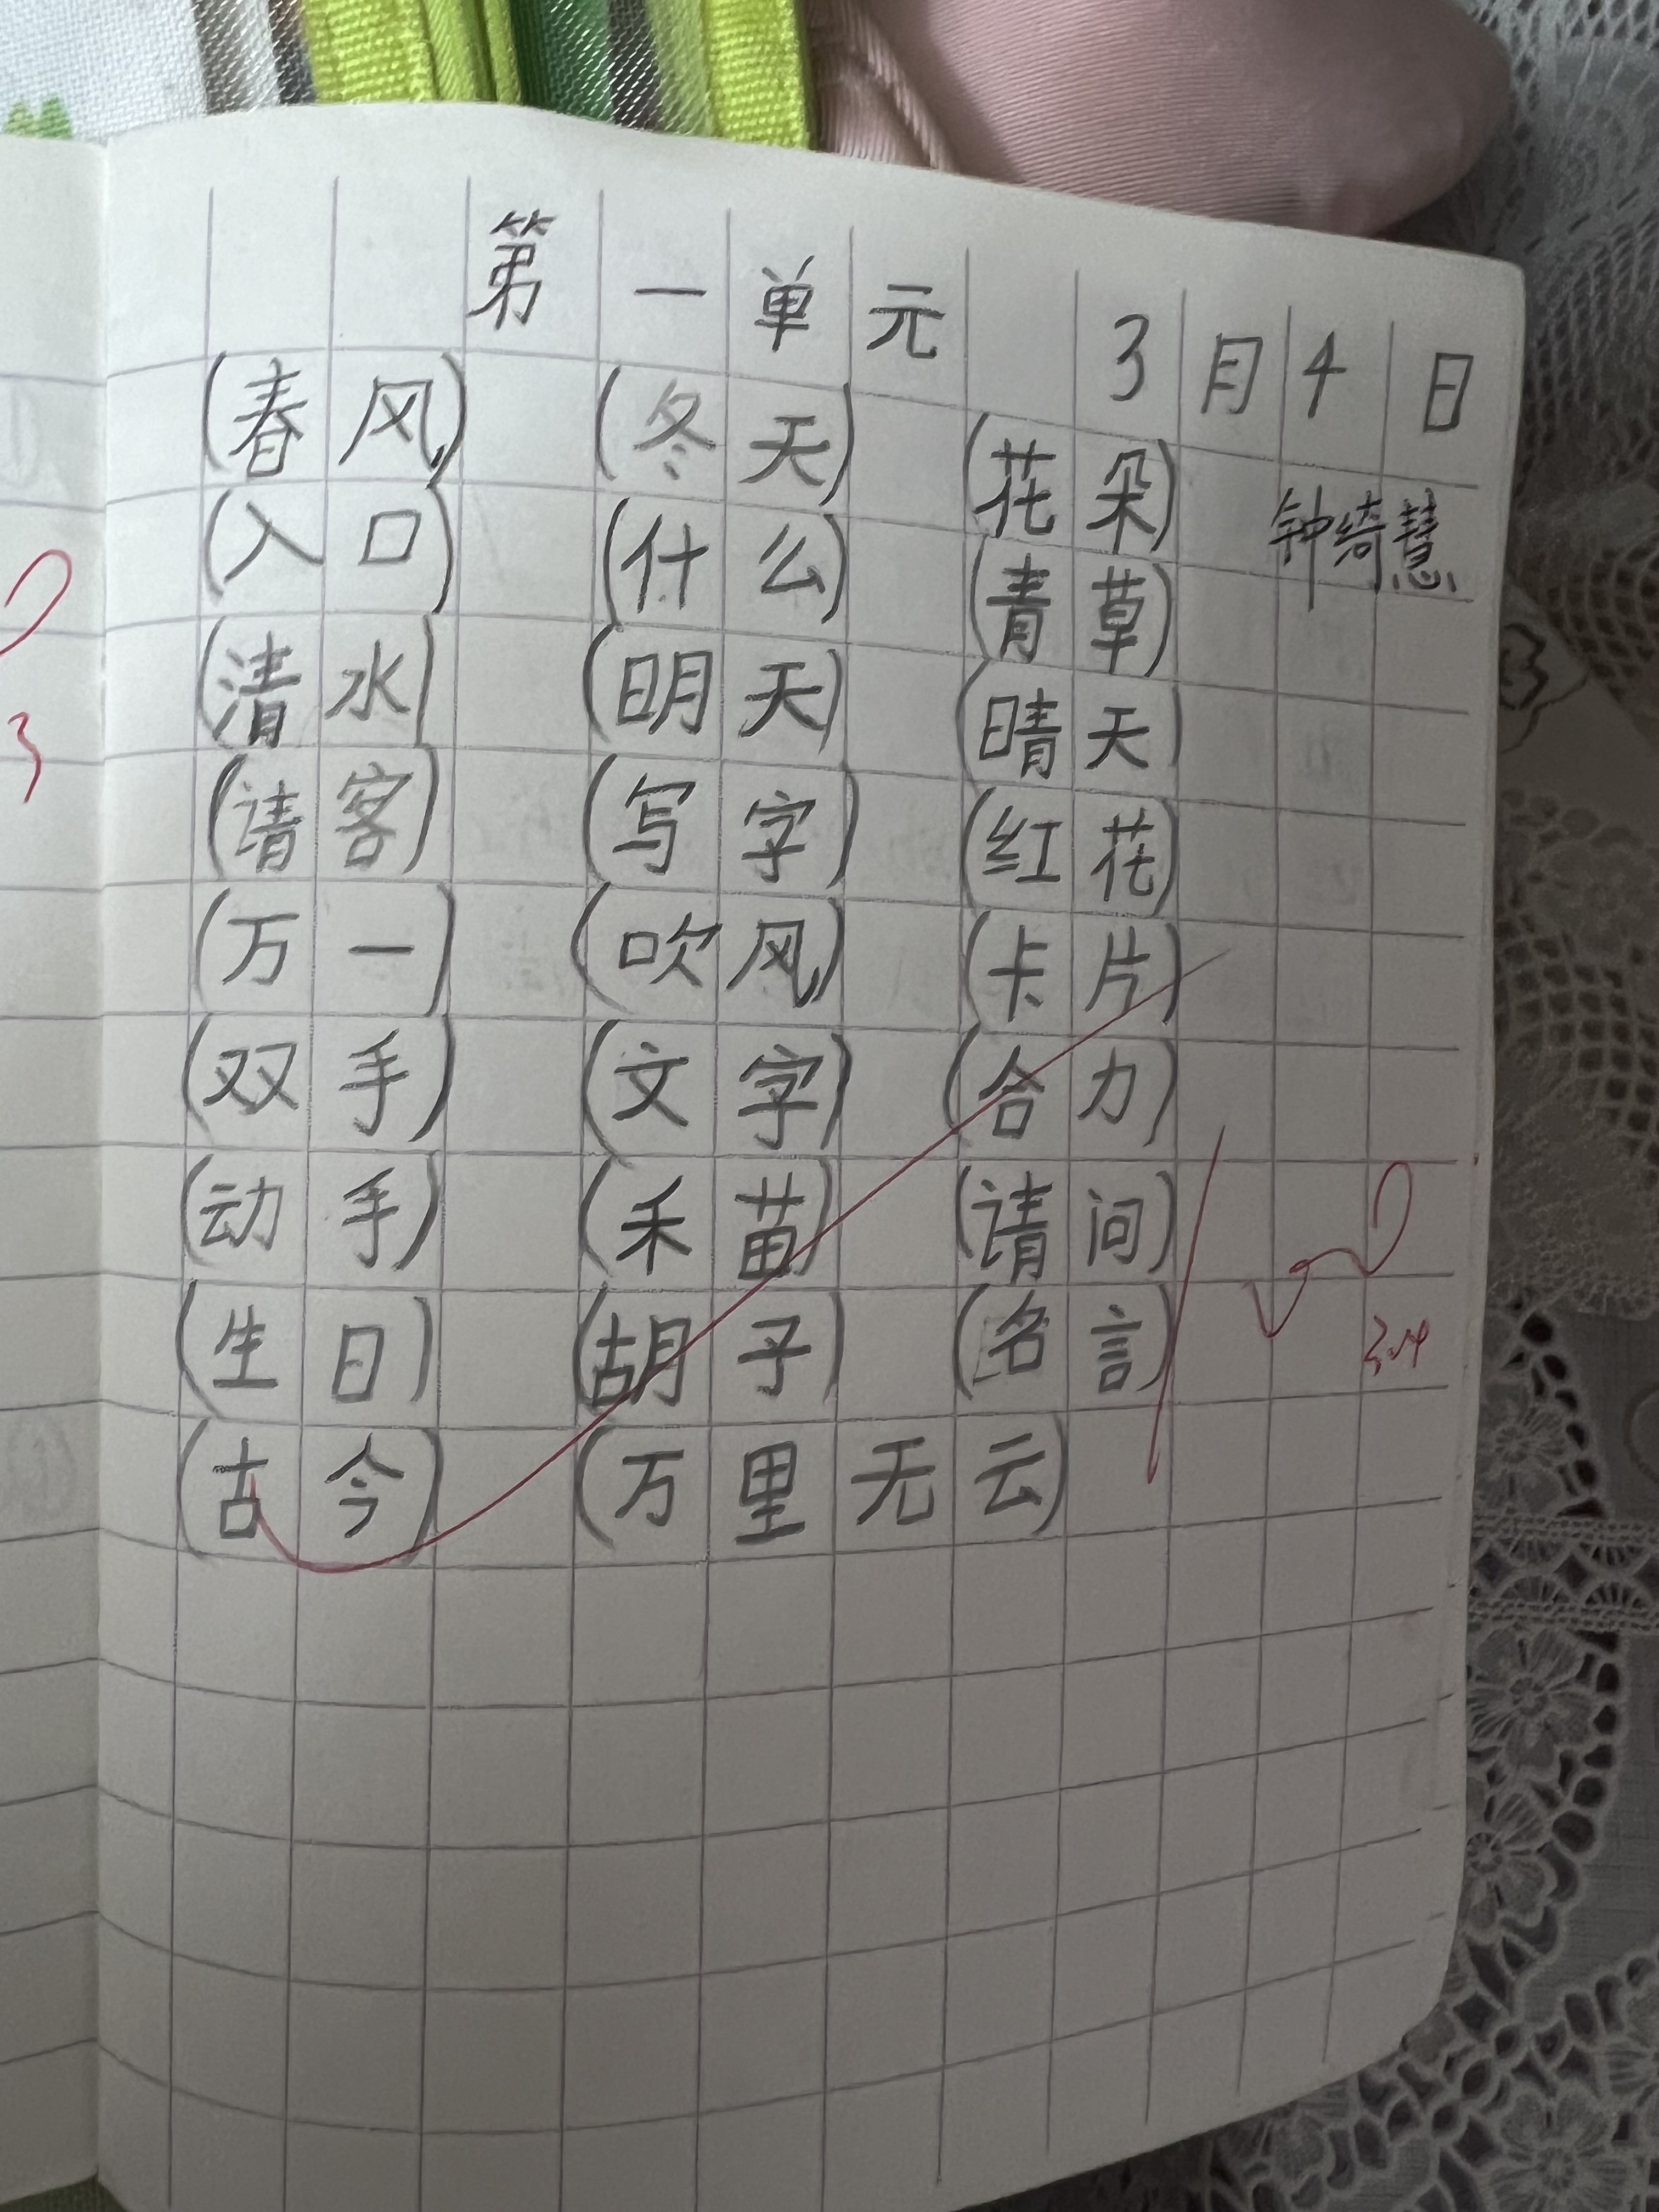 第一单元 3月4日
(春风) (冬天) (花朵) 钟绮慧
(入口) (什么) (青草)
(清水) (明天) (晴天)
(请客) (写字) (红花)
(万一) (吹风) (卡片)
(双手) (文字) (合力)
(动手) (禾苗) (请问)
(生日) (胡子) (名言)
(古今) (万里无云)
3
3.4